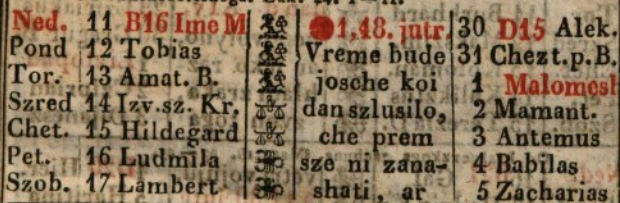 Ned. 11 B16 Ime M 1,18. jutr. 30 D15 Alek.
Pond 12 Tobias Vreme bude 31 Chezt. p. B.
Tor. 13 Amat. B. josche koi 1 Malomesh
Szred 14 Izv. sz. Kr. dan szlusilo, 2 Mamant.
Chet. 15 Hildegard che prem 3 Antemus
Pet. 16 Ludmila sze ni zana- 4 Babilas
Szob. 17 Lambert shati, ar 5 Zacharias